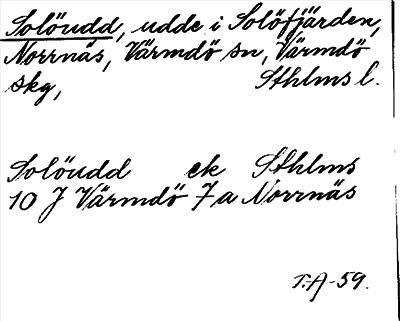 Solöudd, udde i Solöfjärden,
Norrnäs, Värmdö sn, Värmdö
skg, Sthlms l.
Solöudd ek Sthlms
10 J Värmdö 7 a Norrnäs
T.A-59.